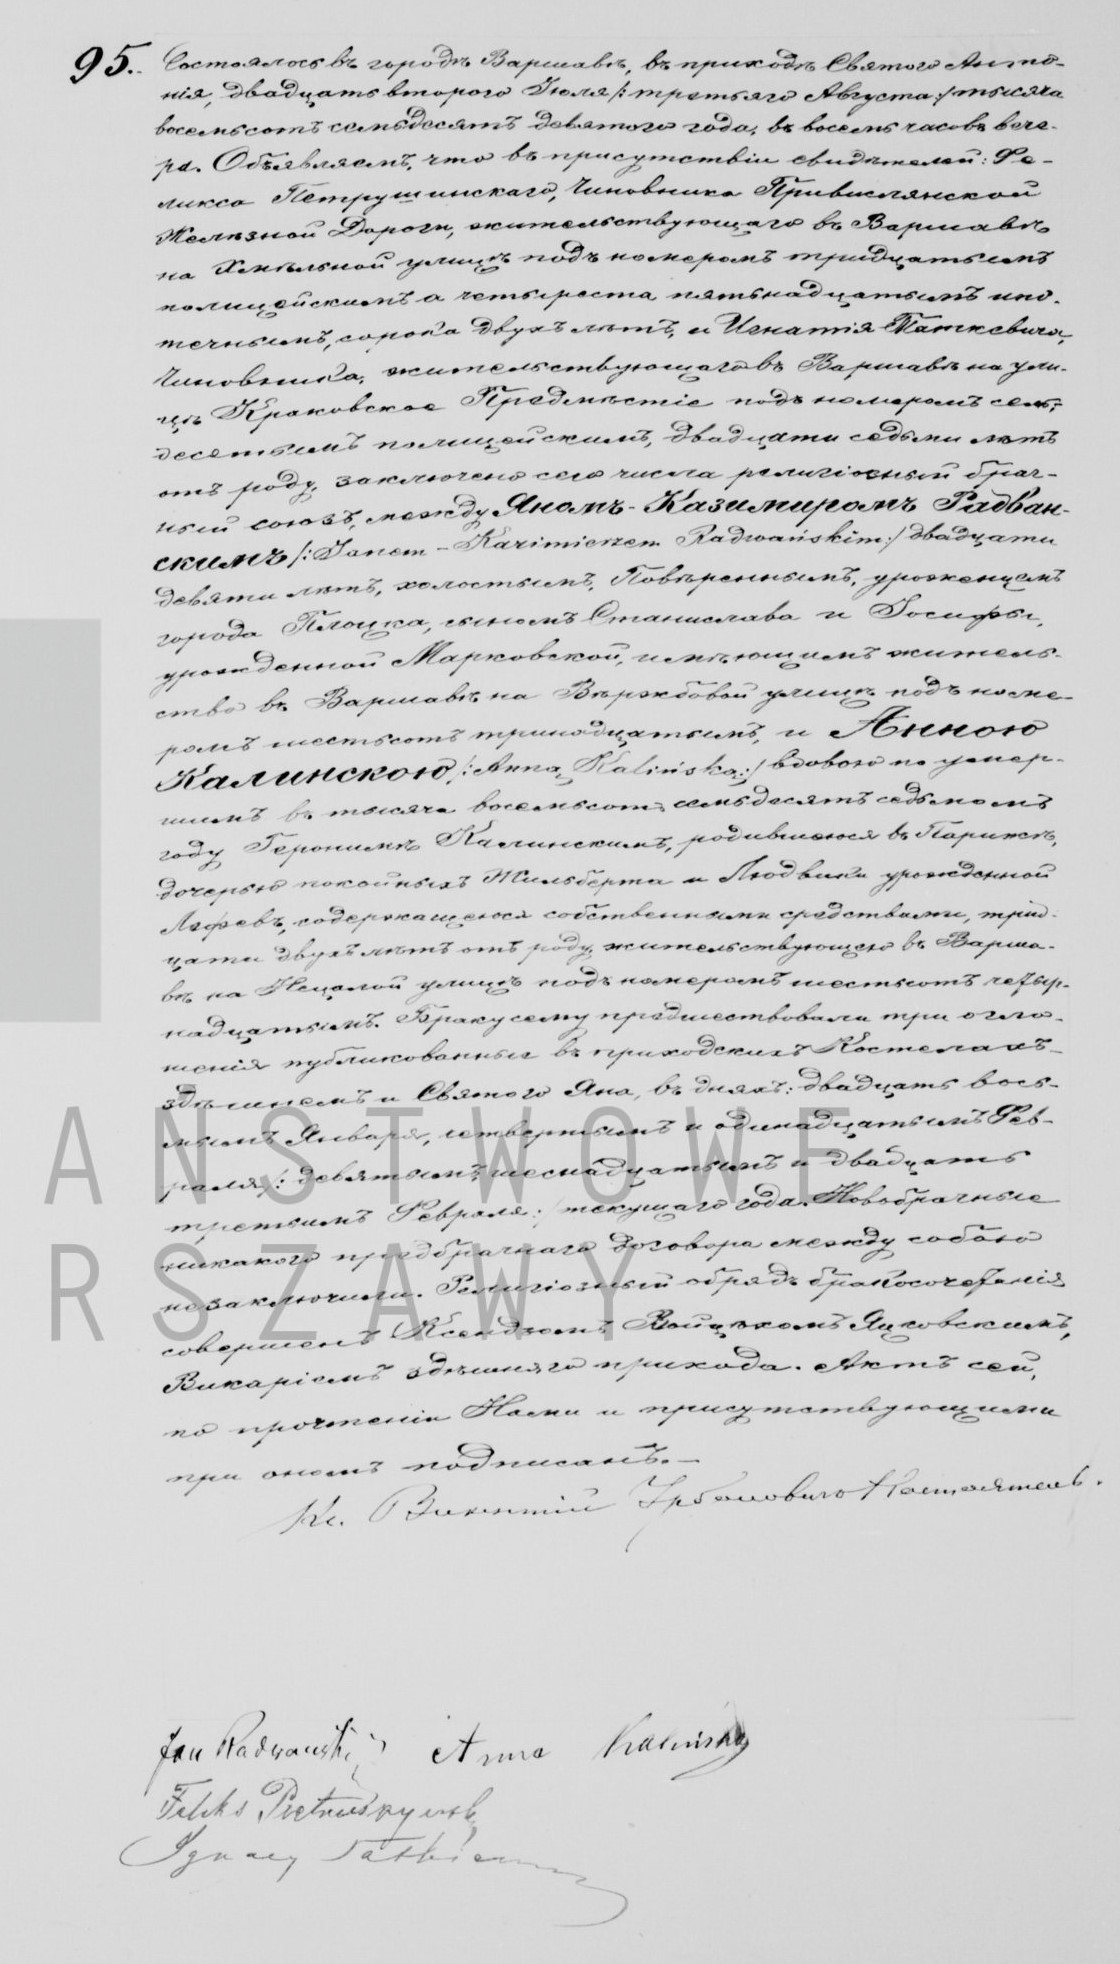 95.
Состоялось въ городѣ Варшавѣ, въ приходѣ Святого Анто-
нія, двадцать второго Іюля /: третьяго Августа :/ тысяча
восемьсотъ семьдесятъ девятого года, въ восемь часовъ вече-
ра. Объявляемъ, что въ присутствіи свидѣтелей: Фе-
ликса Петрушинскаго, Чиновника Привислянской
Желѣзной Дороги, жительствующаго въ Варшавѣ
на Хмѣльной улицѣ подъ номеромъ тридцатымъ
полицейскимъ а четыреста пятьнадцатымъ ипо-
течнымъ, сорока двухъ лѣтъ, и Игнатія Паткевича,
Чиновника, жительствующаго въ Варшавѣ на ули-
цѣ Краковское Предмѣстіе подъ номеромъ семь-
десятымъ полицейскимъ, двадцати седьми лѣтъ
отъ роду, заключено сего числа религіозный брач-
ный союзъ, между Яномъ-Казимиромъ Радван-
скимъ /: Janem-Kazimierzem Radwańskim :/ двадцати
девяти лѣтъ, холостымъ, Повѣреннымъ, уроженцемъ
города Плоцка, сыномъ Станислава и Іосифы,
урожденной Марковской, имѣющимъ житель-
ство въ Варшавѣ на Вѣржбовой улицѣ подъ номе-
ромъ шестьсотъ тринадцатымъ, и Анною
Калинскою /: Anną Kalińską :/ вдовою по умер-
шимъ въ тысяча восемьсотъ семьдесятъ седьмомъ
году Геронимѣ Калинскимъ, родившеюся въ Парижѣ,
дочерью покойныхъ Жильберта и Людвики урожденной
Лефевъ, содержащеюся собственными средствами, трид-
цати двухъ лѣтъ отъ роду, жительствующею въ Варша-
вѣ на Нецалой улицѣ подъ номеромъ шестьсотъ четыр-
надцатымъ. Браку сему предшествовали три огло-
шенія публикованныя въ приходскихъ Костелахъ
здѣшнемъ и Святого Яна, въ дняхъ: двадцать вось-
мымъ Января, четвертымъ и одинадцатымъ Фев-
раля /: девятымъ, шеснадцатымъ и двадцать
третьимъ Февраля :/ текущаго года. Новобрачные
никакого предбрачнаго договора между собою
не заключили. Религіозный обрядъ бракосочетанія
совершенъ Ксендзомъ Войцѣхомъ Яцковскимъ,
Викаріемъ здѣшняго прихода. Актъ сей,
по прочтеніи Нами и присутствующими
при ономъ подписанъ.—
Кс. Викентій Урбановичъ Настоятель.
Jan Radwański Anna Kalińska
Feliks Pietruszyński
Ignacy Patkiewicz
ANSTWOWE
RSZAWY